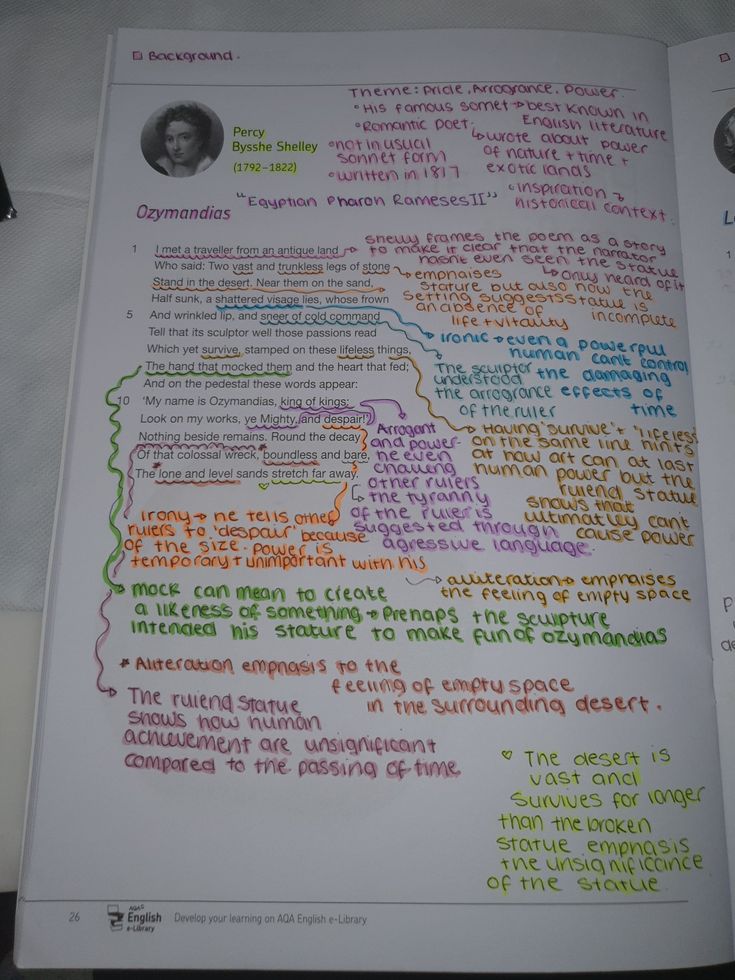 Background.
Theme: Pride, Arrogance, Power.
Percy
Bysshe Shelley
(1792–1822)
• His famous somet → best known in
English literature
• Romantic poet.
↳ wrote about power
of nature + time +
exotic lands
• not in usual
sonnet form
• written in 1817
• inspiration →
historical context.
"Egyptian Pharoh Rameses II"
Ozymandias
1 I met a traveller from an antique land
Who said: Two vast and trunkless legs of stone
Stand in the desert. Near them on the sand,
Half sunk, a shattered visage lies, whose frown
5 And wrinkled lip, and sneer of cold command
Tell that its sculptor well those passions read
Which yet survive, stamped on these lifeless things,
The hand that mocked them and the heart that fed;
And on the pedestal these words appear:
10 'My name is Ozymandias, king of kings:
Look on my works, ye Mighty, and despair!'
Nothing beside remains. Round the decay
Of that colossal wreck, boundless and bare,
The lone and level sands stretch far away.
shelly frames the poem as a story
to make it clear that the narrator
hasnt even seen the statue
↳ only heard of it
emphaises
stature but also how the
setting suggests statue is
an absence of incomplete
life + vitality
ironic → even a powerful
human can't control
the damaging
effects of
time
The sculptor
understood
the arrogrance
of the ruler
Having 'survive' + 'lifeless'
on the same line hints
at how art can at last
human power but the
ruiend statue
shows that
ultimatley can't
cause power
Arrogant
and power-
he even
challeng
other rulers
↳ the tyranny
of the ruler is
suggested through
agressive language.
irony → he tells other
rulers to 'despair' because
of the size. power is
temporary + unimportant with his
alliteration → emphaises
the feeling of empty space
mock can mean to create
a likeness of something → Prehaps the sculpture
intended his stature to make fun of ozymandias
* Aliteration emphasis to the
feeling of empty space
in the surrounding desert.
The ruiend statue
shows how human
achievement are unsignificant
compared to the passing of time
♡ The desert is
vast and
survives for longer
than the broken
statue emphasis
the unsignificance
of the statue
26
AQA
English
e-Library
Develop your learning on AQA English e-Library